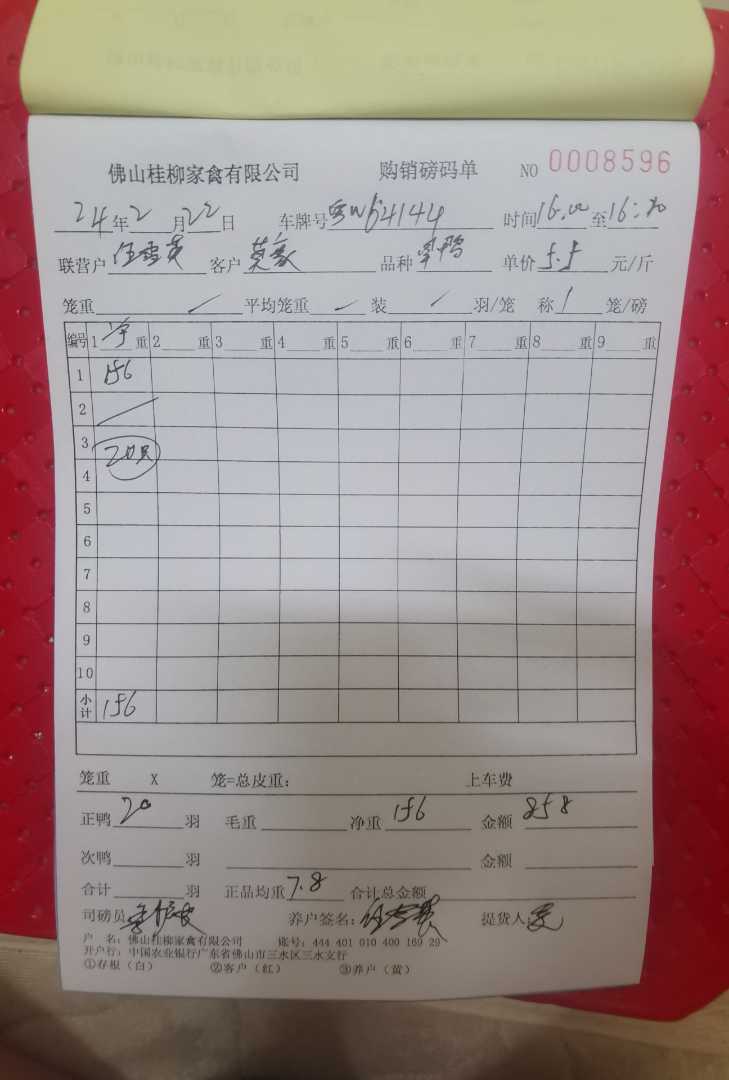 佛山桂柳家禽有限公司 购销磅码单 NO 0008596
24年2月22日 车牌号 W64144 时间16:00至16:20
联营户 客户 品种 单价5.5元/斤
笼重 / 平均笼重 / 装 / 羽/笼 称 1 笼/磅
编号 1 重 2 重 3 重 4 重 5 重 6 重 7 重 8 重 9 重
1 156
2
3 20只
4
5
6
7
8
9
10
小计 156
笼重 X 笼=总皮重: 上车费
正鸭 20 羽 毛重 净重 156 金额 858
次鸭 羽 金额
合计 羽 正品均重 7.8 合计总金额
司磅员 养户签名: 提货人
户 名: 佛山桂柳家禽有限公司 账号: 444 401 010 400 169 29
开户行: 中国农业银行广东省佛山市三水区三水支行
①存根(白) ②客户(红) ③养户(黄)